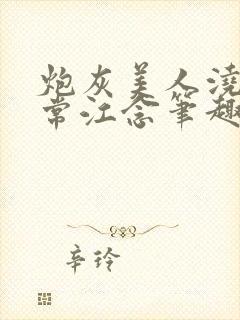 炮灰美人浇
常江念笔趣
辛玲